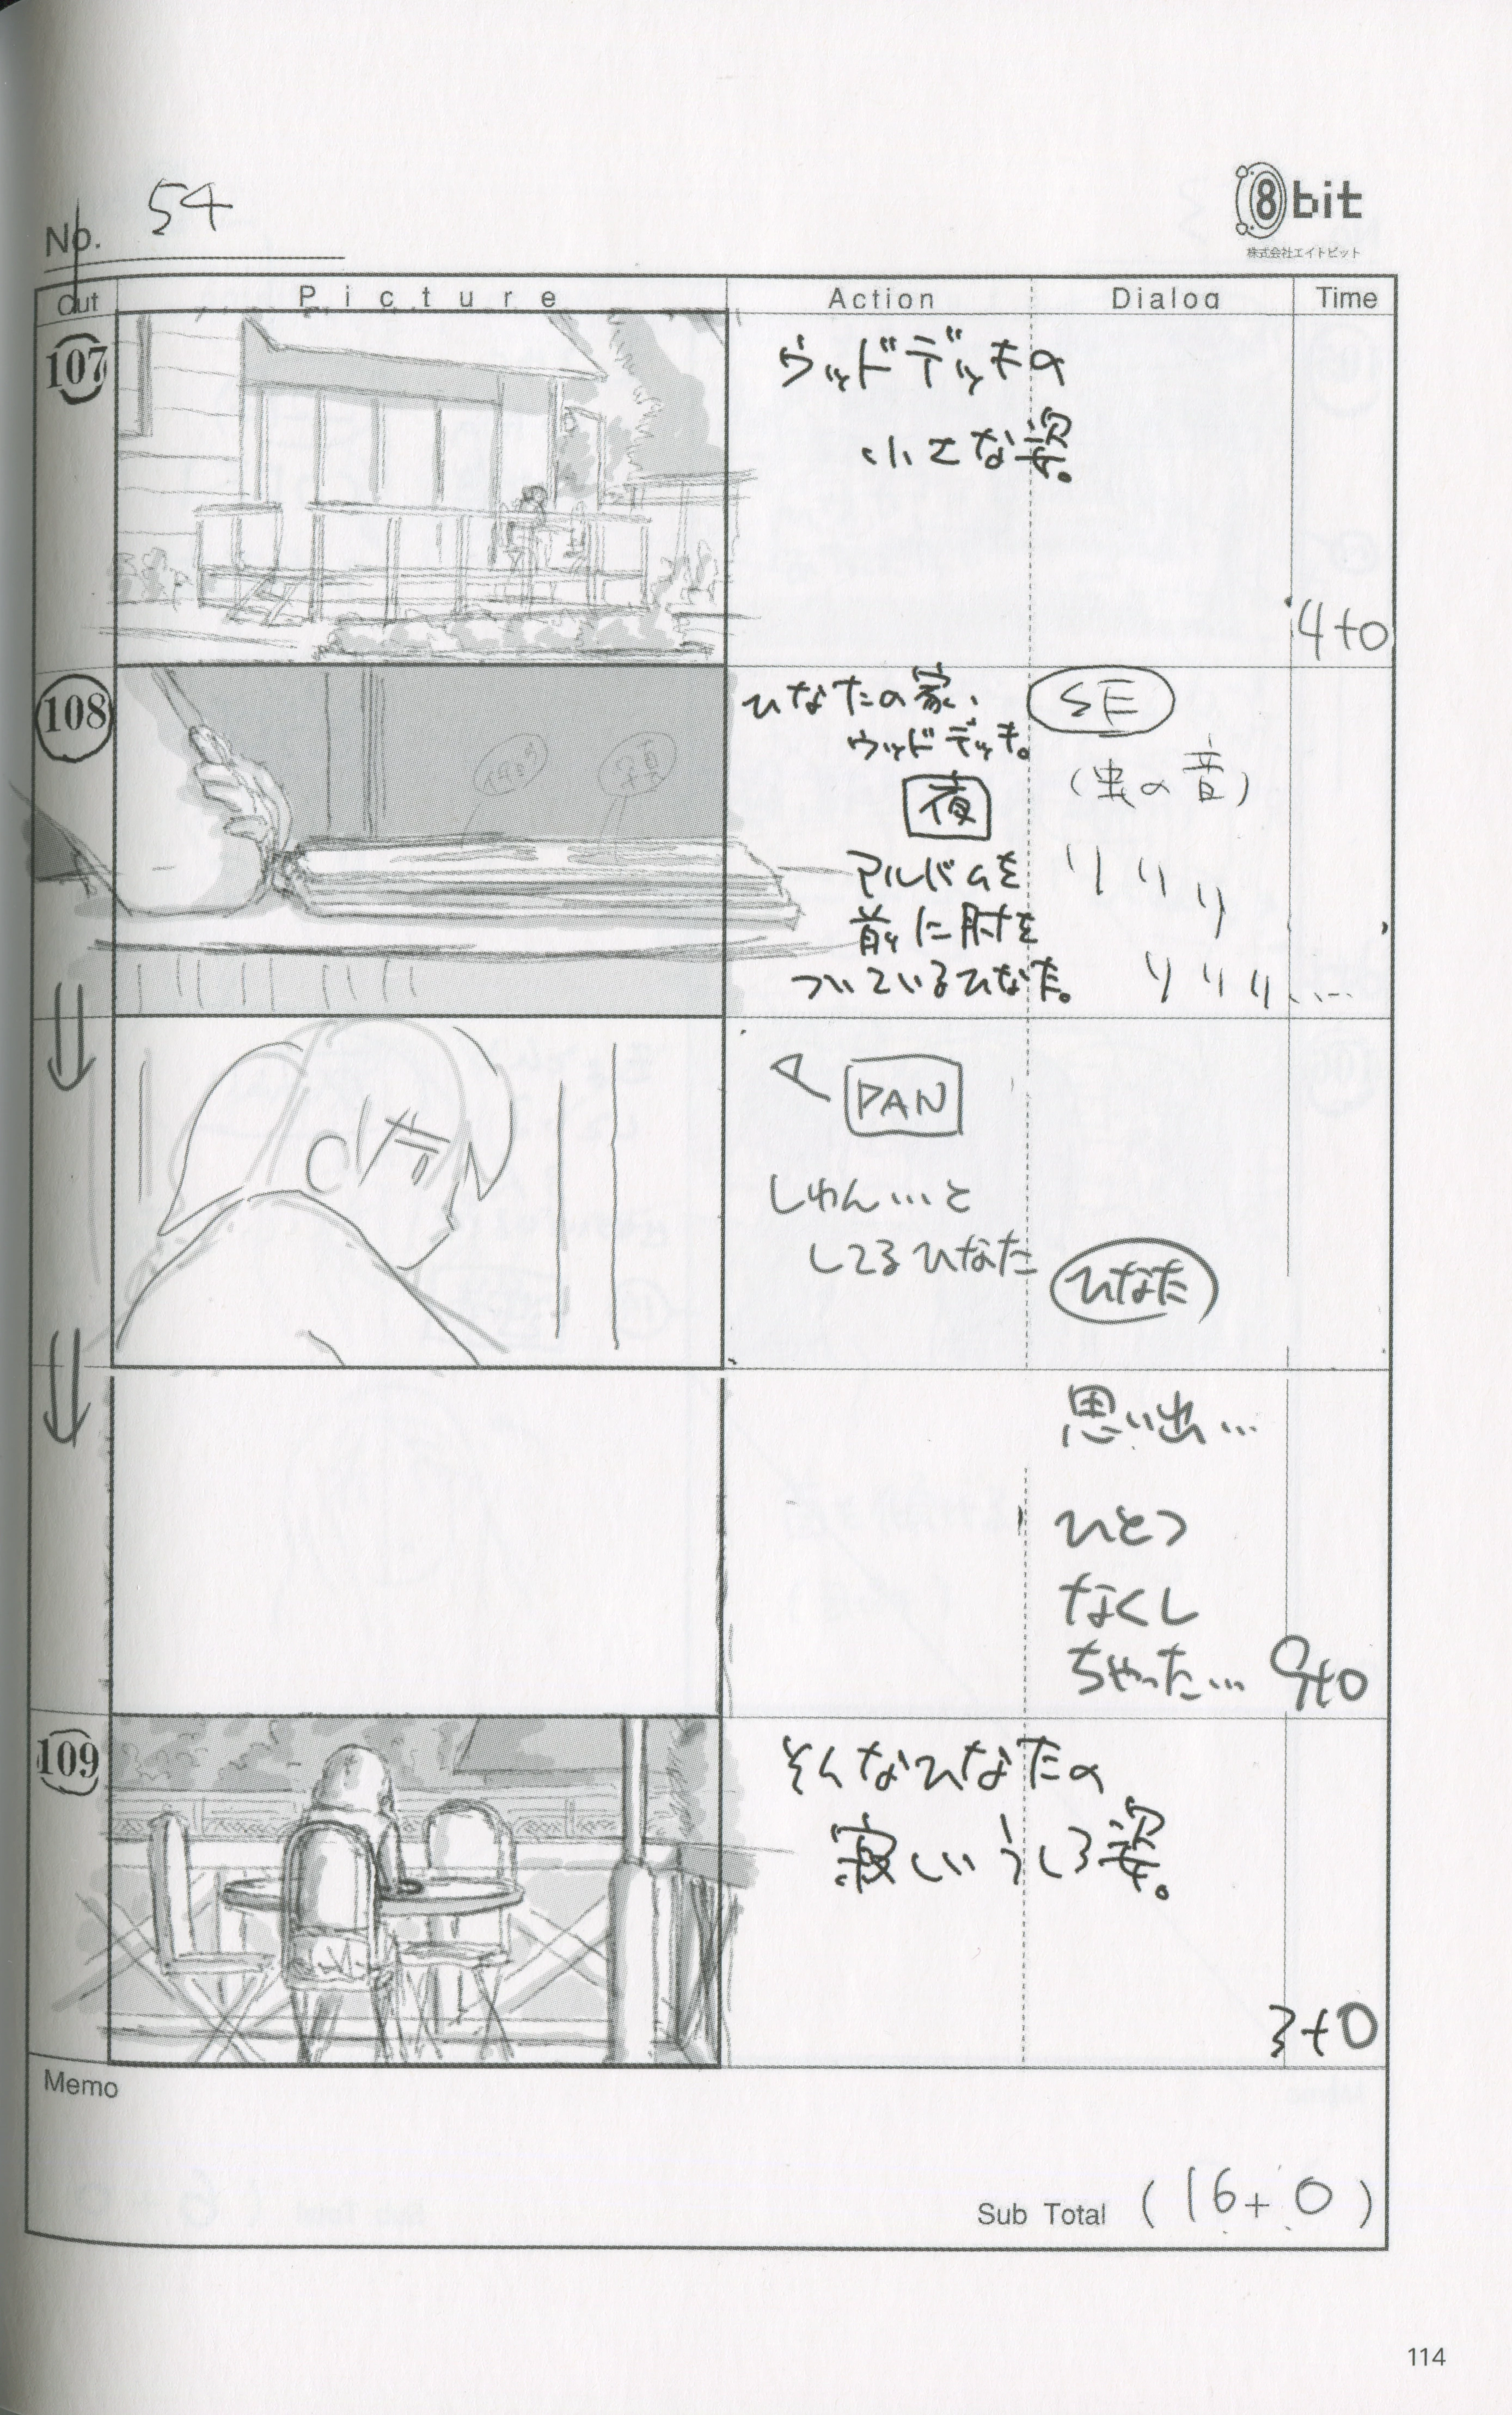 No. 54
8bit
株式会社エイトビット
Cut Picture Action Dialog Time
107
ウッドデッキの
小さな姿。
4+0
108
写真
ひなたの家、
ウッドデッキ。
夜
アルバムを
前に肘を
ついているひなた。
SE
(虫の音)
リリリ
リリリ…
PAN
しゅん…と
してるひなた
ひなた
思い出…
ひとつ
なくし
ちゃった…
9+0
109
そんなひなたの
寂しいうしろ姿。
3+0
Memo
Sub Total (16+0)
114